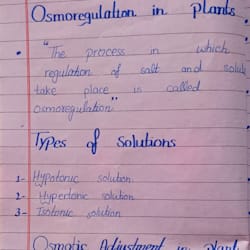 Osmoregulation in plants
"The process in which
regulation of salt and solute
take place is called
osmoregulation"
Types of Solutions
1- Hypotonic solution.
2- Hypertonic solution
3- Isotonic solution
Osmotic Adjustment in plant